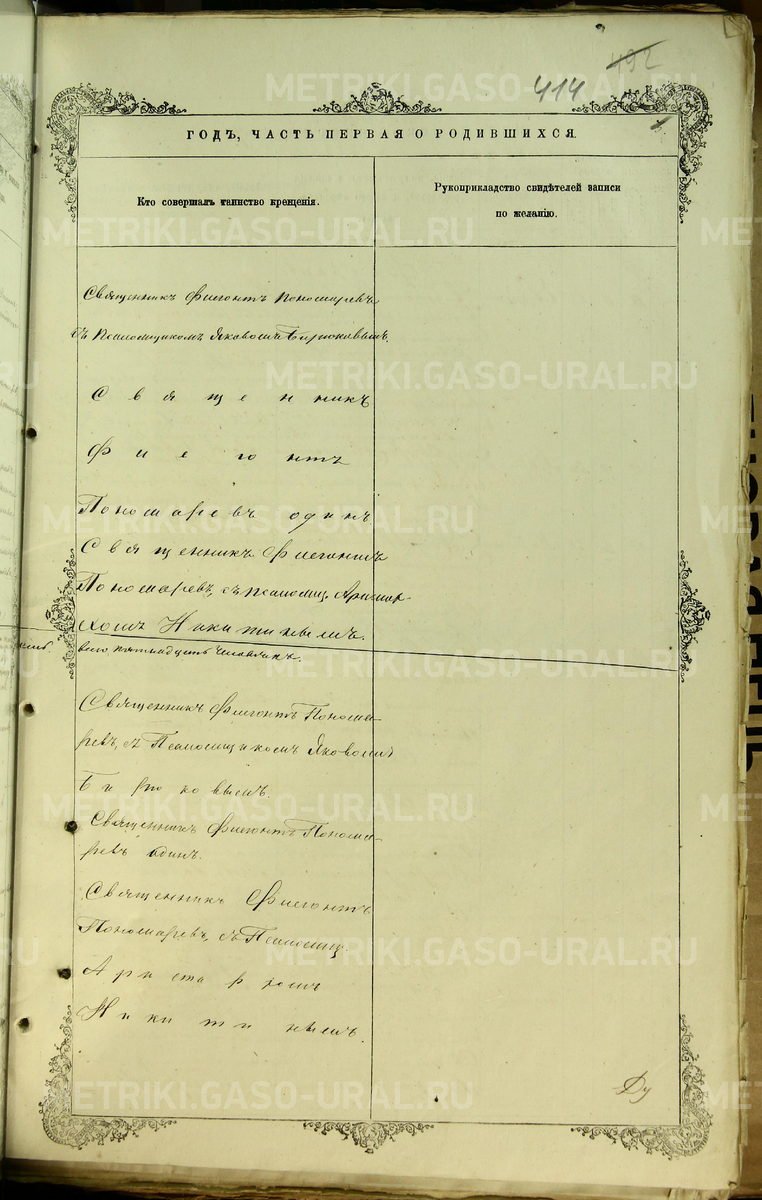 492
414
ГОДЪ, ЧАСТЬ ПЕРВАЯ О РОДИВШИХСЯ.
Кто совершалъ таинство крещенія.
Рукоприкладство свидѣтелей записи
по желанію.
Священникъ Флегонтъ Пономаревъ
съ Псаломщикомъ Яковомъ Бирюковымъ.
Священникъ
Флегонтъ
Пономаревъ одинъ
Священникъ Флегонтъ
Пономаревъ, съ псаломщ. Аристар-
хомъ Никитинымъ.
всего пятнадцать человѣкъ.
Священникъ Флегонтъ Понома-
ревъ, съ Псаломщикомъ Яковомъ
Бирюковымъ.
Священникъ Флегонтъ Понома-
ревъ один.
Священникъ Флегонтъ
Пономаревъ, съ Псаломщ.
Аристархомъ
Никитинымъ.
Ду
METRIKI.GASO-URAL.RU